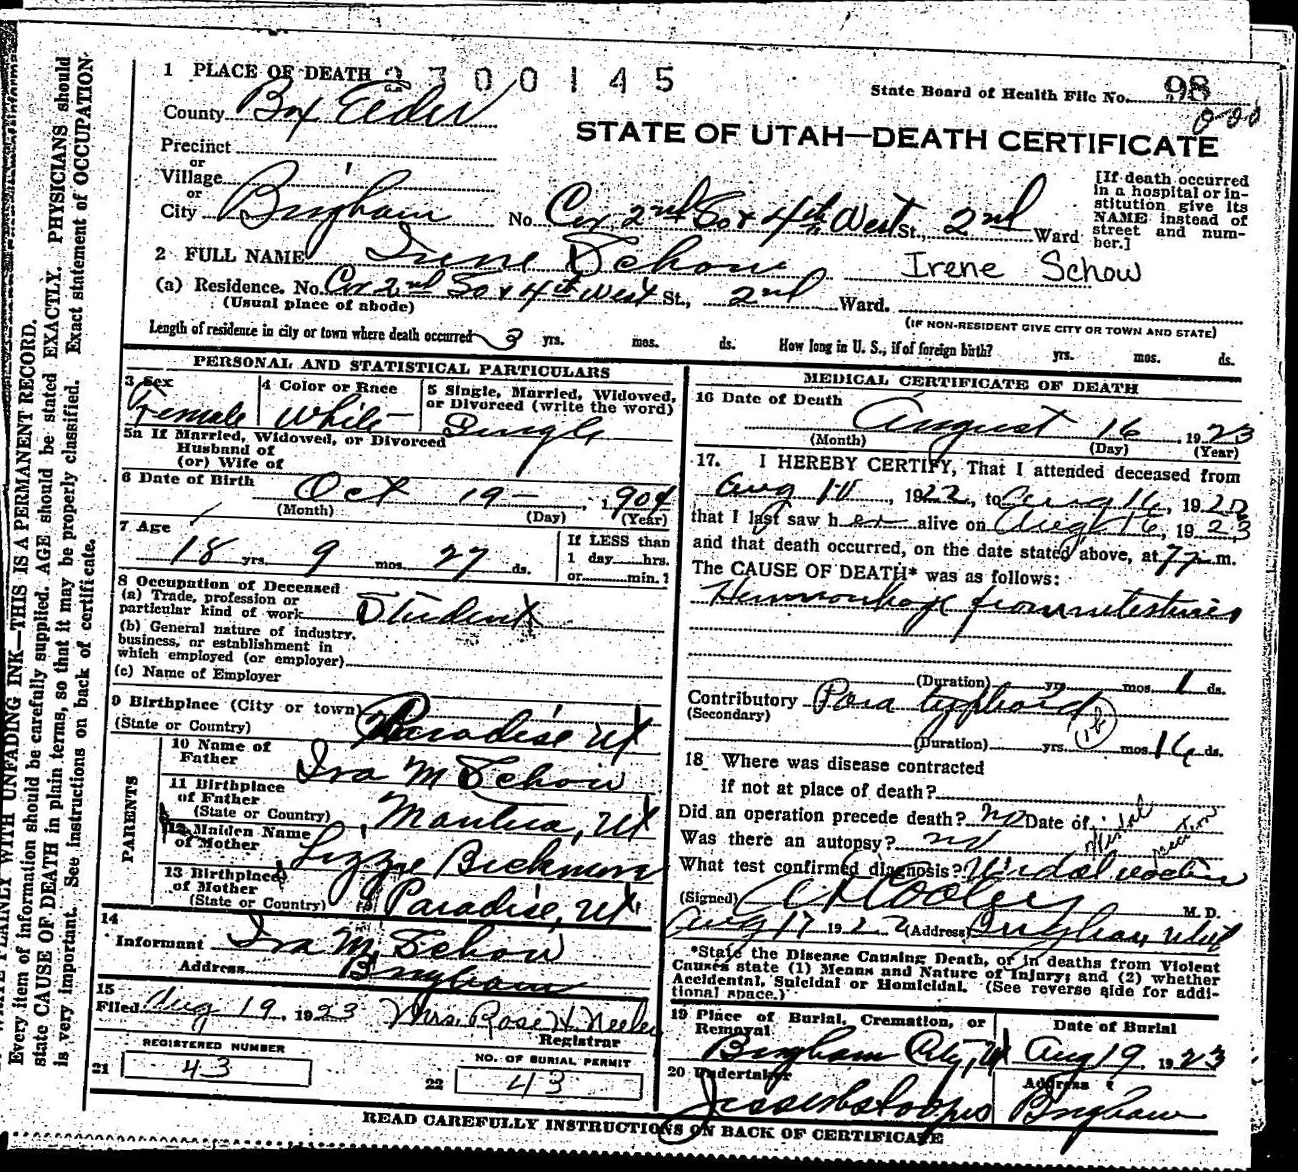 1 PLACE OF DEATH 2300145
State Board of Health File No. 98
County Box Elder
STATE OF UTAH—DEATH CERTIFICATE
Precinct
or
Village
or
City Brigham No. Cor 2nd So & 4th West St., 2nd Ward
[If death occurred in a hospital or institution give its NAME instead of street and number.]
2 FULL NAME Irene Schow Irene Schow
(a) Residence. No. Cor 2nd So & 4th West St., 2nd Ward.
(Usual place of abode) (IF NON-RESIDENT GIVE CITY OR TOWN AND STATE)
Length of residence in city or town where death occurred 3 yrs. mos. ds. How long in U. S., if of foreign birth? yrs. mos. ds.
PERSONAL AND STATISTICAL PARTICULARS
3 Sex Female
4 Color or Race White
5 Single, Married, Widowed, or Divorced (write the word) Single
5a If Married, Widowed, or Divorced
Husband of
(or) Wife of
6 Date of Birth Oct 19 1904
(Month) (Day) (Year)
7 Age 18 yrs. 9 mos. 27 ds.
If LESS than
1 day hrs.
or min.?
8 Occupation of Deceased
(a) Trade, profession or
particular kind of work Student
(b) General nature of industry,
business, or establishment in
which employed (or employer)
(c) Name of Employer
9 Birthplace (City or town) Paradise, Ut
(State or Country)
PARENTS
10 Name of
Father Ira M Schow
11 Birthplace
of Father
(State or Country) Mantua, Ut
12 Maiden Name
of Mother Lizzie Bickmore
13 Birthplace
of Mother
(State or Country) Paradise, Ut
14
Informant Ira M. Schow
Address Brigham
15
Filed Aug 19, 1923 Mrs. Rose H. Neeley
Registrar
REGISTERED NUMBER
21 43
NO. OF BURIAL PERMIT
22 43
MEDICAL CERTIFICATE OF DEATH
16 Date of Death
August 16, 1923
(Month) (Day) (Year)
17. I HEREBY CERTIFY, That I attended deceased from
Aug 10, 1922, to Aug 16, 192
that I last saw her alive on Aug 16, 1923
and that death occurred, on the date stated above, at m.
The CAUSE OF DEATH* was as follows:
Hemmorhage from intestines
(Duration) yrs. mos. 1 ds.
Contributory Para typhoid
(Secondary)
(Duration) yrs. mos. 16 ds.
18 Where was disease contracted
if not at place of death?
Did an operation precede death? no Date of
Was there an autopsy? no
What test confirmed diagnosis? Widal reaction
Widal reaction
(Signed) Cooley M. D.
Aug 17 1922 (Address) Brigham Utah
*State the Disease Causing Death, or in deaths from Violent
Causes state (1) Means and Nature of Injury; and (2) whether
Accidental, Suicidal or Homicidal. (See reverse side for addi-
tional space.)
19 Place of Burial, Cremation, or
Removal Date of Burial
Brigham City, Ut Aug 19 1923
20 Undertaker Address
Brigham
READ CAREFULLY INSTRUCTIONS ON BACK OF CERTIFICATE
WRITE PLAINLY WITH UNFADING INK—THIS IS A PERMANENT RECORD.
Every item of information should be carefully supplied. AGE should be stated EXACTLY. PHYSICIANS should
state CAUSE OF DEATH in plain terms, so that it may be properly classified. Exact statement of OCCUPATION
is very important. See instructions on back of certificate.